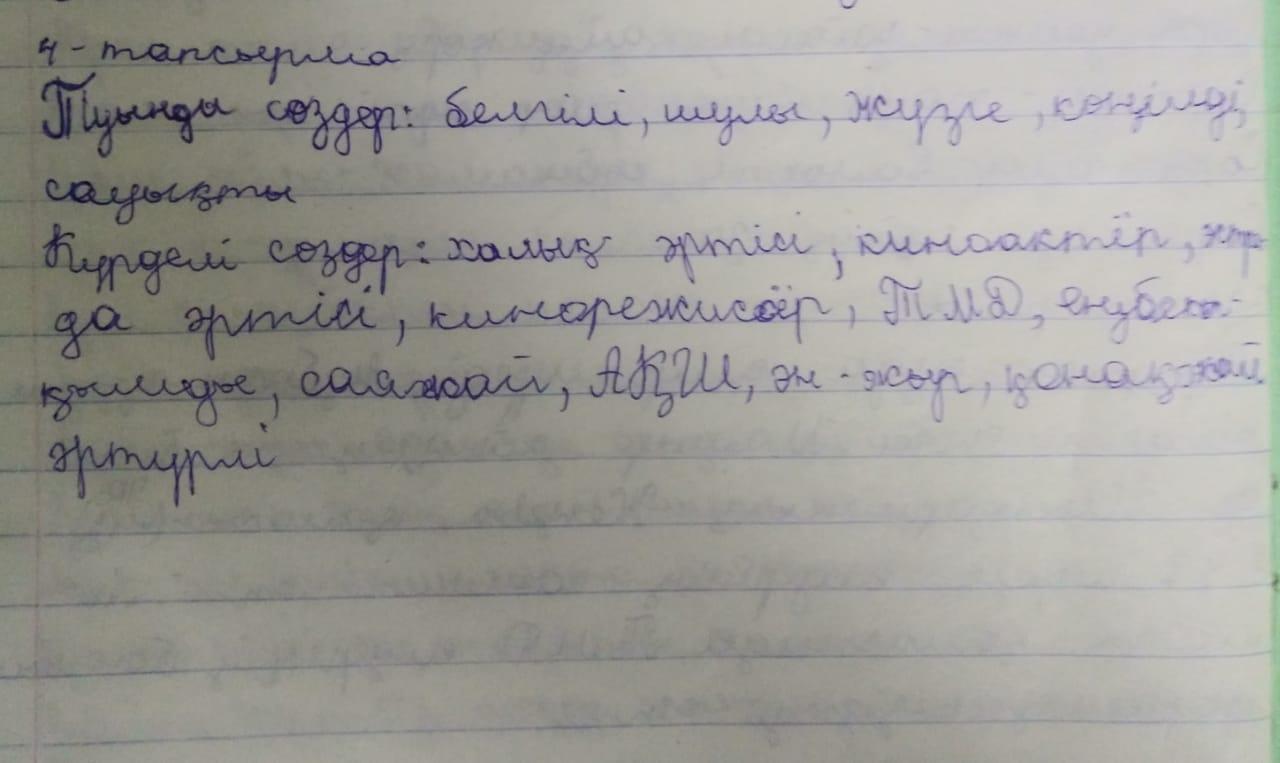 4-тапсырма
Туынды сөздер: белгілі, шулы, жүзге, көңілді,
сауықты
Күрделі сөздер: халық әртісі, киноактёр,
да әртісі, кинорежиссёр, ТМД, еңбек-
қылды, саяжай, АҚШ, ән-жыр, қонақжай
әртүрлі